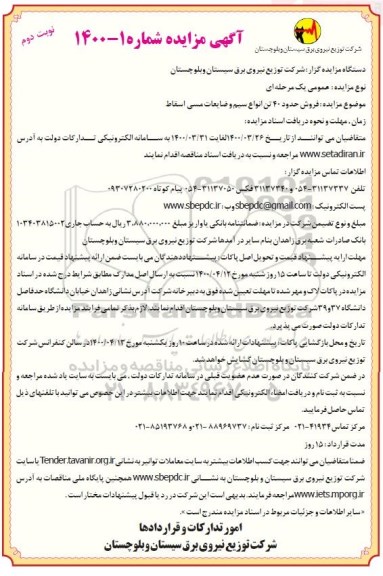 نوبت دوم
آگهی مزایده شماره ۱-۱۴۰۰
شرکت توزیع نیروی برق سیستان و بلوچستان
دستگاه مزایده گزار: شرکت توزیع نیروی برق سیستان و بلوچستان
نوع مزایده: عمومی یک مرحله ای
موضوع مزایده: فروش حدود ۴۰ تن انواع سیم و ضایعات مسی اسقاط
زمان، مهلت و نحوه دریافت اسناد مزایده:
متقاضیان می توانند از تاریخ ۱۴۰۰/۰۳/۲۶ لغایت ۱۴۰۰/۰۳/۳۱ به سامانه الکترونیکی تدارکات دولت به آدرس
www.setadiran.ir مراجعه و نسبت به دریافت اسناد مناقصه اقدام نمایند
اطلاعات تماس مزایده گزار:
تلفن ۳۱۱۳۷۳۳۷-۰۵۴ و ۳۱۱۳۷۳۴۰ فکس ۳۱۱۳۷۰۵۰-۰۵۴ پیام کوتاه ۰۹۳۰۷۲۸۰۲۰۰
پست الکترونیکی sbepdc@gmail.com وب: www.sbepdc.ir
مبلغ و نوع تضمین شرکت در مزایده: ضمانتنامه بانکی یا واریز مبلغ ۳،۸۸۰،۰۰۰،۰۰۰ ریال به حساب جاری ۰۱۰۳۴۰۳۸۱۵۰۰۲
بانک صادرات شعبه برق زاهدان بنام سایر درآمدها شرکت توزیع نیروی برق سیستان و بلوچستان
مهلت ارایه پیشنهاد قیمت و تحویل اصل پاکات: پیشنهاددهندگان می بایست ضمن ارائه پیشنهاد قیمت در سامانه
الکترونیکی دولت تا ساعت ۱۵ روز شنبه مورخ ۱۴۰۰/۰۴/۱۲ نسبت به ارسال اصل مدارک مطابق شرایط درج شده در اسناد
مزایده در پاکات لاک و مهر شده تا مهلت تعیین شده فوق به دبیرخانه شرکت آدرس نشانی زاهدان خیابان دانشگاه حدفاصل
دانشگاه ۳۷ و ۳۹ شرکت توزیع نیروی برق سیستان و بلوچستان اقدام نمایند. لازم بذکر تمامی فرایند مزایده از طریق سامانه
تدارکات دولت صورت می پذیرد.
تاریخ و محل بازگشایی پاکات: پیشنهادات ارائه شده در ساعت ۱۰ روز یکشنبه مورخ ۱۴۰۰/۰۴/۱۳ در سالن کنفرانس شرکت
توزیع نیروی برق سیستان و بلوچستان گشایش خواهد شد.
در ضمن شرکت کنندگان در صورت عدم عضویت قبلی در سامانه تدارکات دولت، می بایست به سایت یاد شده مراجعه و
نسبت به ثبت نام و دریافت امضاء الکترونیکی اقدام نمایند جهت اطلاعات بیشتر در این خصوص می توانید با تلفنهای ذیل
تماس حاصل فرمایید.
مرکز تماس: ۴۱۹۳۴-۰۲۱ مرکز ثبت نام: ۸۸۹۶۹۷۳۷-۰۲۱ و ۸۵۱۹۳۷۶۸-۰۲۱
مدت قرارداد: ۱۵ روز
ضمنا متقاضیان می توانند جهت کسب اطلاعات بیشتر به سایت معاملات توانیر به نشانی Tender.tavanir.org.ir یا سایت
شرکت توزیع نیروی برق سیستان و بلوچستان به نشانی www.sbepdc.ir همچنین پایگاه ملی مناقصات به آدرس
www.iets.mporg.ir مراجعه فرمایند. بدیهی است این شرکت در رد یا قبول پیشنهادات مختار است.
«سایر اطلاعات و جزئیات مربوط در اسناد مزایده مندرج است».
امور تدارکات و قراردادها
شرکت توزیع نیروی برق سیستان و بلوچستان